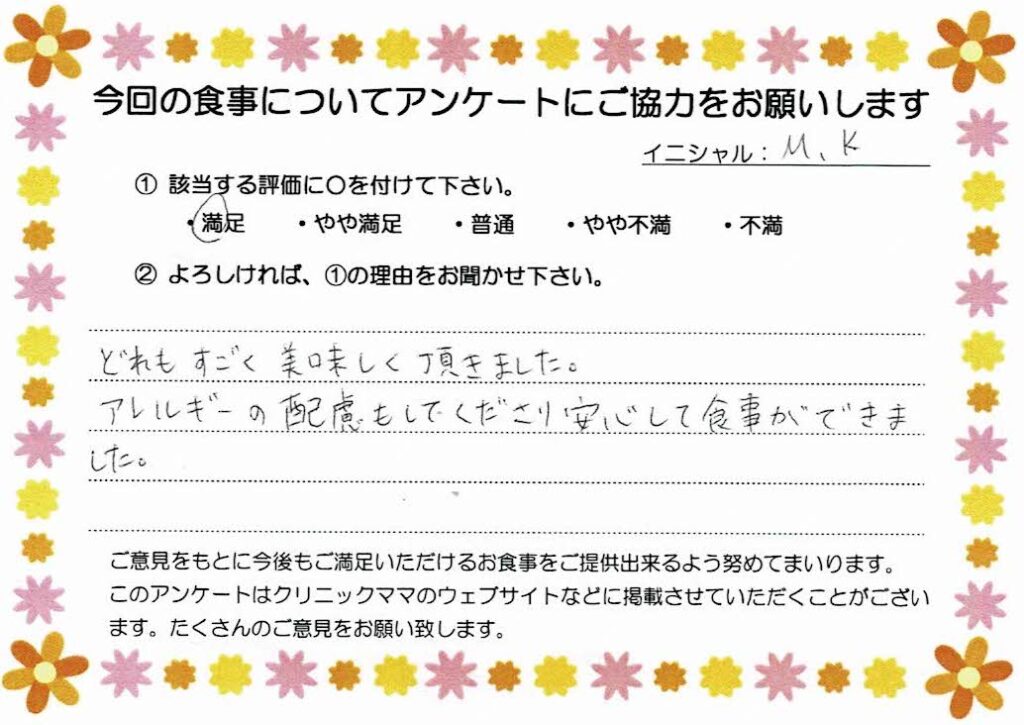 今回の食事についてアンケートにご協力をお願いします
イニシャル：M、K
① 該当する評価に〇を付けて下さい。
・満足　・やや満足　・普通　・やや不満　・不満
② よろしければ、①の理由をお聞かせ下さい。
どれもすごく美味しく頂きました。
アレルギーの配慮もしてくださり安心して食事ができま
した。
ご意見をもとに今後もご満足いただけるお食事をご提供出来るよう努めてまいります。
このアンケートはクリニックママのウェブサイトなどに掲載させていただくことがござい
ます。たくさんのご意見をお願い致します。